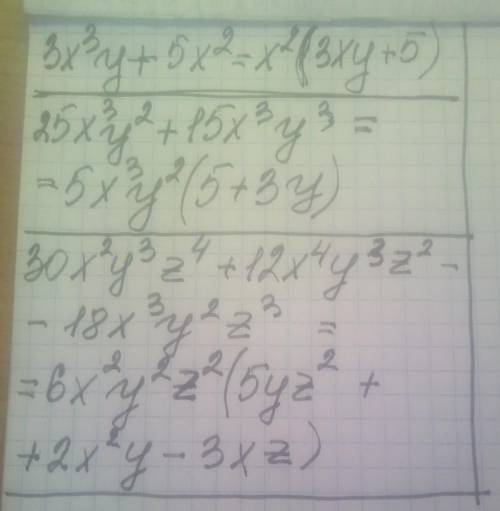 3x³y + 5x² = x²(3xy+5)
25x³y² + 15x³y³ =
= 5x³y²(5+3y)
30x²y³z⁴ + 12x⁴y³z² -
- 18x³y²z³ =
= 6x²y²z²(5yz² +
+ 2x²y - 3xz)